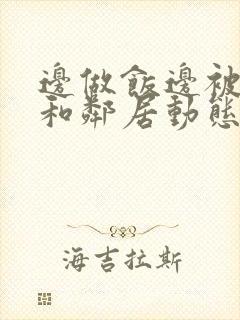 邊做飯邊被
和鄰居動態
海吉拉斯